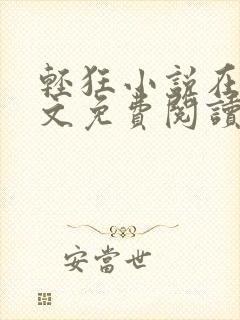 輕狂小說在
文免費閱讀
安當世